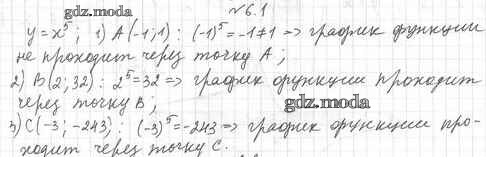 gdz.moda
№6.1
y = x⁵; 1) A(-1; 1): (-1)⁵ = -1 ≠ 1 => график функции
не проходит через точку A;
2) B(2; 32): 2⁵ = 32 => график функции проходит
через точку B;
gdz.moda
3) C(-3; -243): (-3)⁵ = -243 => график функции про-
ходит через точку C.